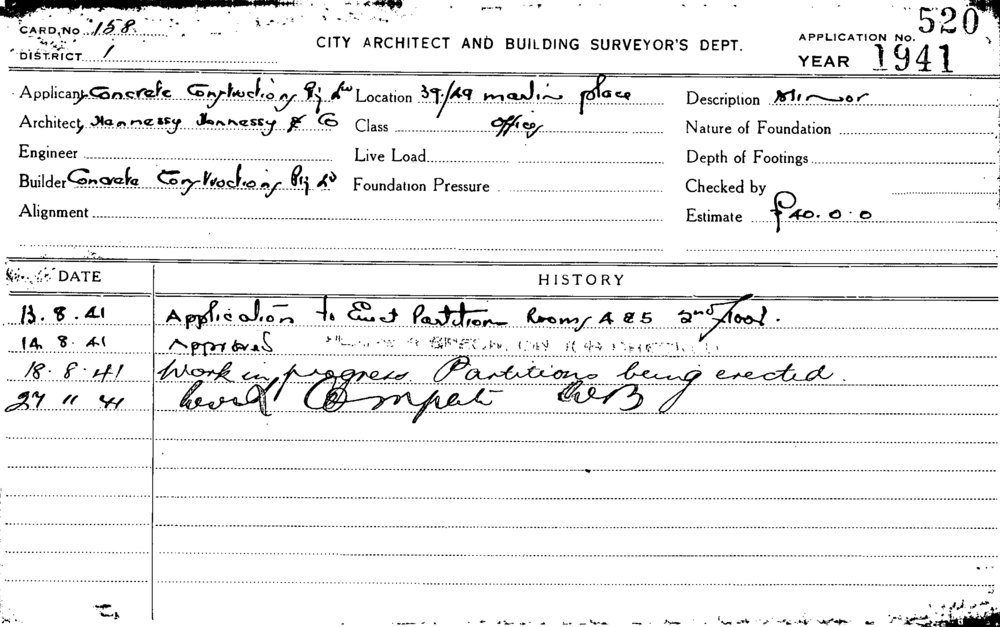 CARD, No 158
DISTRICT 1
CITY ARCHITECT AND BUILDING SURVEYOR'S DEPT.
APPLICATION No. 520
YEAR 1941
Applicant Concrete Constructions Pty Ld
Location 39/49 martin place
Description Minor
Architect Hennessy Hennessy & Co
Class Offices
Nature of Foundation
Engineer
Live Load
Depth of Footings
Builder Concrete Constructions Pty Ld
Foundation Pressure
Checked by
Alignment
Estimate £40.0.0
DATE HISTORY
13.8.41 Application to Erect Partition Rooms 4 & 5 2nd floor.
14 8.41 Approved
18.8.41 Work in progress. Partitions being erected.
27 " 41 Work